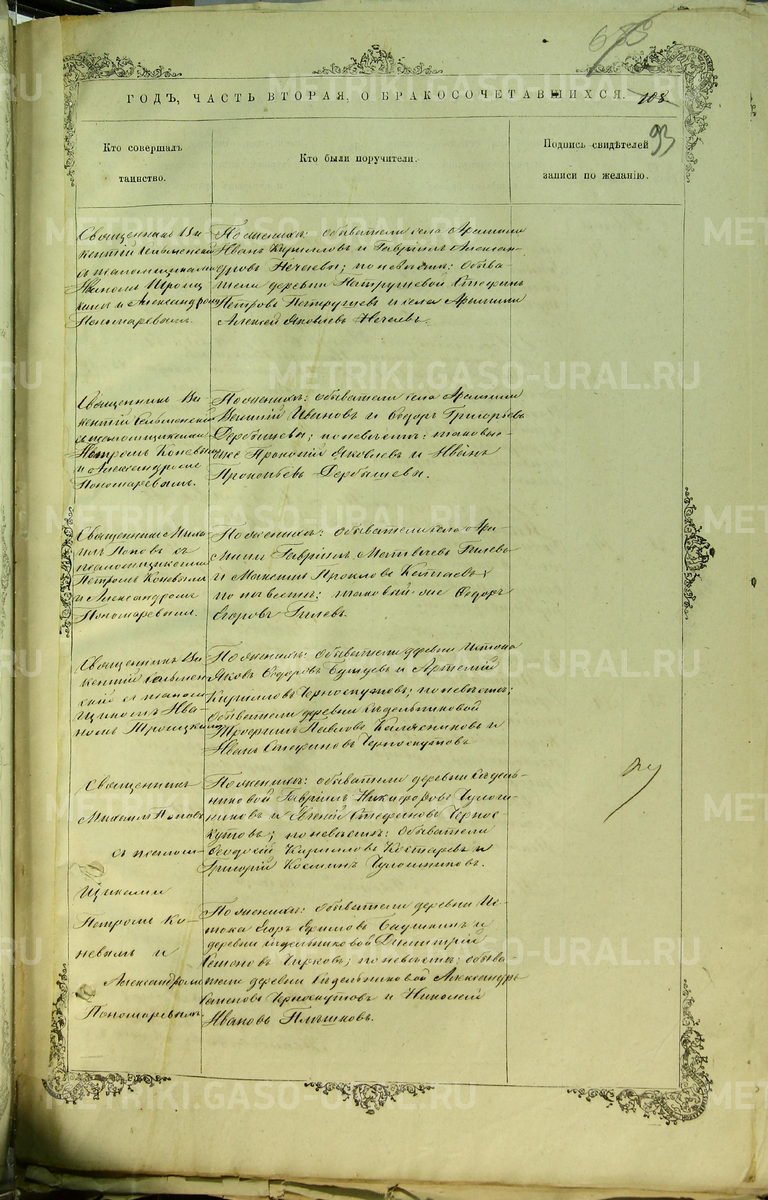 683
ГОДЪ, ЧАСТЬ ВТОРАЯ, О БРАКОСОЧЕТАВШИХСЯ.
108
93
Кто совершалъ
таинство.
Кто были поручители.
Подпись свидѣтелей
записи по желанію.
Священникъ Ви-
кентій
съ псаломщиками
Иваномъ Троиц-
кимъ и Александромъ
Пономаревымъ.
По женихѣ: обыватели села Арамили
Иванъ Кирилловъ и Гавріилъ Алексан-
дровъ Нечаевы; по невѣстѣ: обыва-
тели деревни Патрушевой Стефанъ
Петровъ Патрушевъ и села Арамили
Алексѣй Яковлевъ Нечаевъ.
Священникъ Ви-
кентій
съ псаломщиками
Петромъ Коневымъ
и Александромъ
Пономаревымъ.
По женихѣ: обыватели села Арамили
Ивановъ и Ѳедоръ Григорьевъ
Дербышевы; по невѣстѣ: таковые-
же Прокопій Яковлевъ и Иванъ
Прокопьевъ Дербышевы.
Священникъ Миха-
илъ Поповъ съ
псаломщиками
Петромъ Коневымъ
и Александромъ
Пономаревымъ.
По женихѣ: обыватели села Ара-
мили Гавріилъ Матвѣевъ Гилевъ
и Максимъ Прокловъ
по невѣстѣ: таковой же Ѳедоръ
Егоровъ Гилевъ.
Священникъ Ви-
кентій
съ псалом-
щикомъ Ива-
номъ Троицкимъ
По женихѣ: обыватели деревни Истока
Яковъ Ѳедоровъ и Артемій
Кирилловъ Черноскутовъ; по невѣстѣ:
обыватели деревни Сидельниковой
Трофимъ Павловъ и
Иванъ Стефановъ Черноскутовъ
Священникъ
Михаилъ Поповъ
съ псалом-
щиками
Петромъ Ко-
невымъ и
Александромъ
Пономаревымъ.
По женихѣ: обыватели деревни Сидель-
никовой Гавріилъ Никифоровъ Чулош-
никовъ и Евгеній Стефановъ Чернос-
кутовъ; по невѣстѣ: обыватели
Ѳеодосій Кирилловъ Костаревъ и
Григорій Косминъ Чулошниковъ.
По женихѣ: обыватели деревни Ис-
тока Егоръ Ефимовъ и
деревни Сидельниковой Димитрій
Семеновъ Чирковъ; по невѣстѣ: обыва-
тели деревни Сидельниковой Александръ
Семеновъ Черноскутовъ и Николай
Ивановъ
METRIKI.GASO-URAL.RU